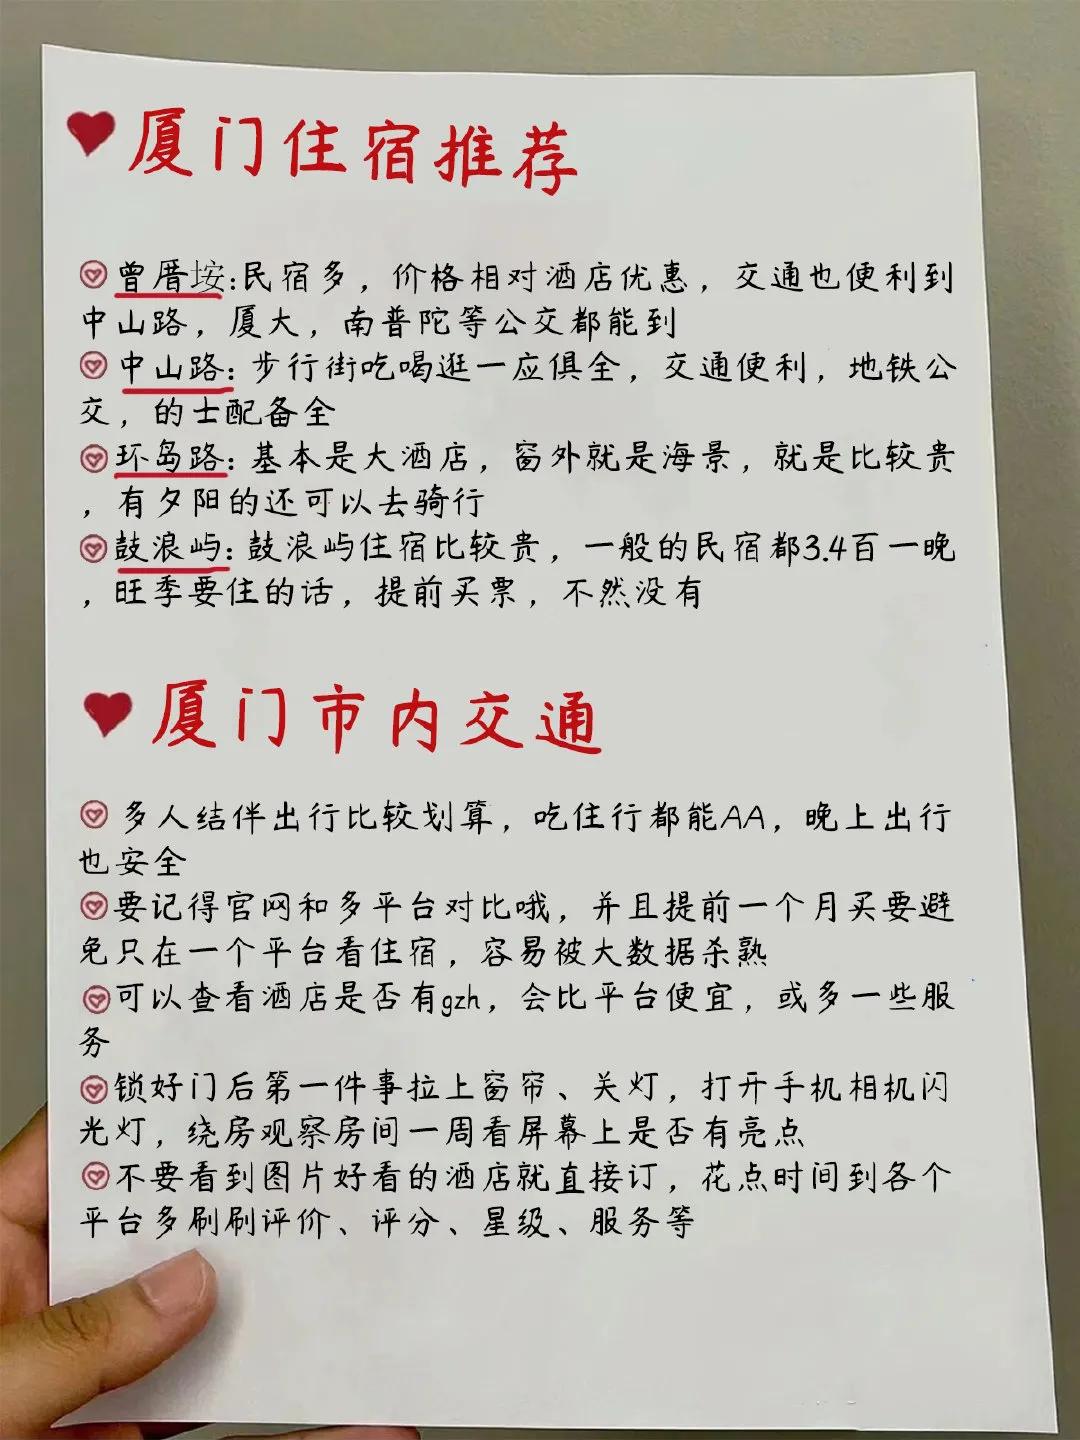 厦门住宿推荐
曾厝垵:民宿多，价格相对酒店优惠，交通也便利到
中山路，厦大，南普陀等公交都能到
中山路：步行街吃喝逛一应俱全，交通便利，地铁公
交，的士配备全
环岛路：基本是大酒店，窗外就是海景，就是比较贵
，有夕阳的还可以去骑行
鼓浪屿：鼓浪屿住宿比较贵，一般的民宿都3.4百一晚
，旺季要住的话，提前买票，不然没有
厦门市内交通
多人结伴出行比较划算，吃住行都能AA，晚上出行
也安全
要记得官网和多平台对比哦，并且提前一个月买要避
免只在一个平台看住宿，容易被大数据杀熟
可以查看酒店是否有gzh，会比平台便宜，或多一些服
务
锁好门后第一件事拉上窗帘、关灯，打开手机相机闪
光灯，绕房观察房间一周看屏幕上是否有亮点
不要看到图片好看的酒店就直接订，花点时间到各个
平台多刷刷评价、评分、星级、服务等